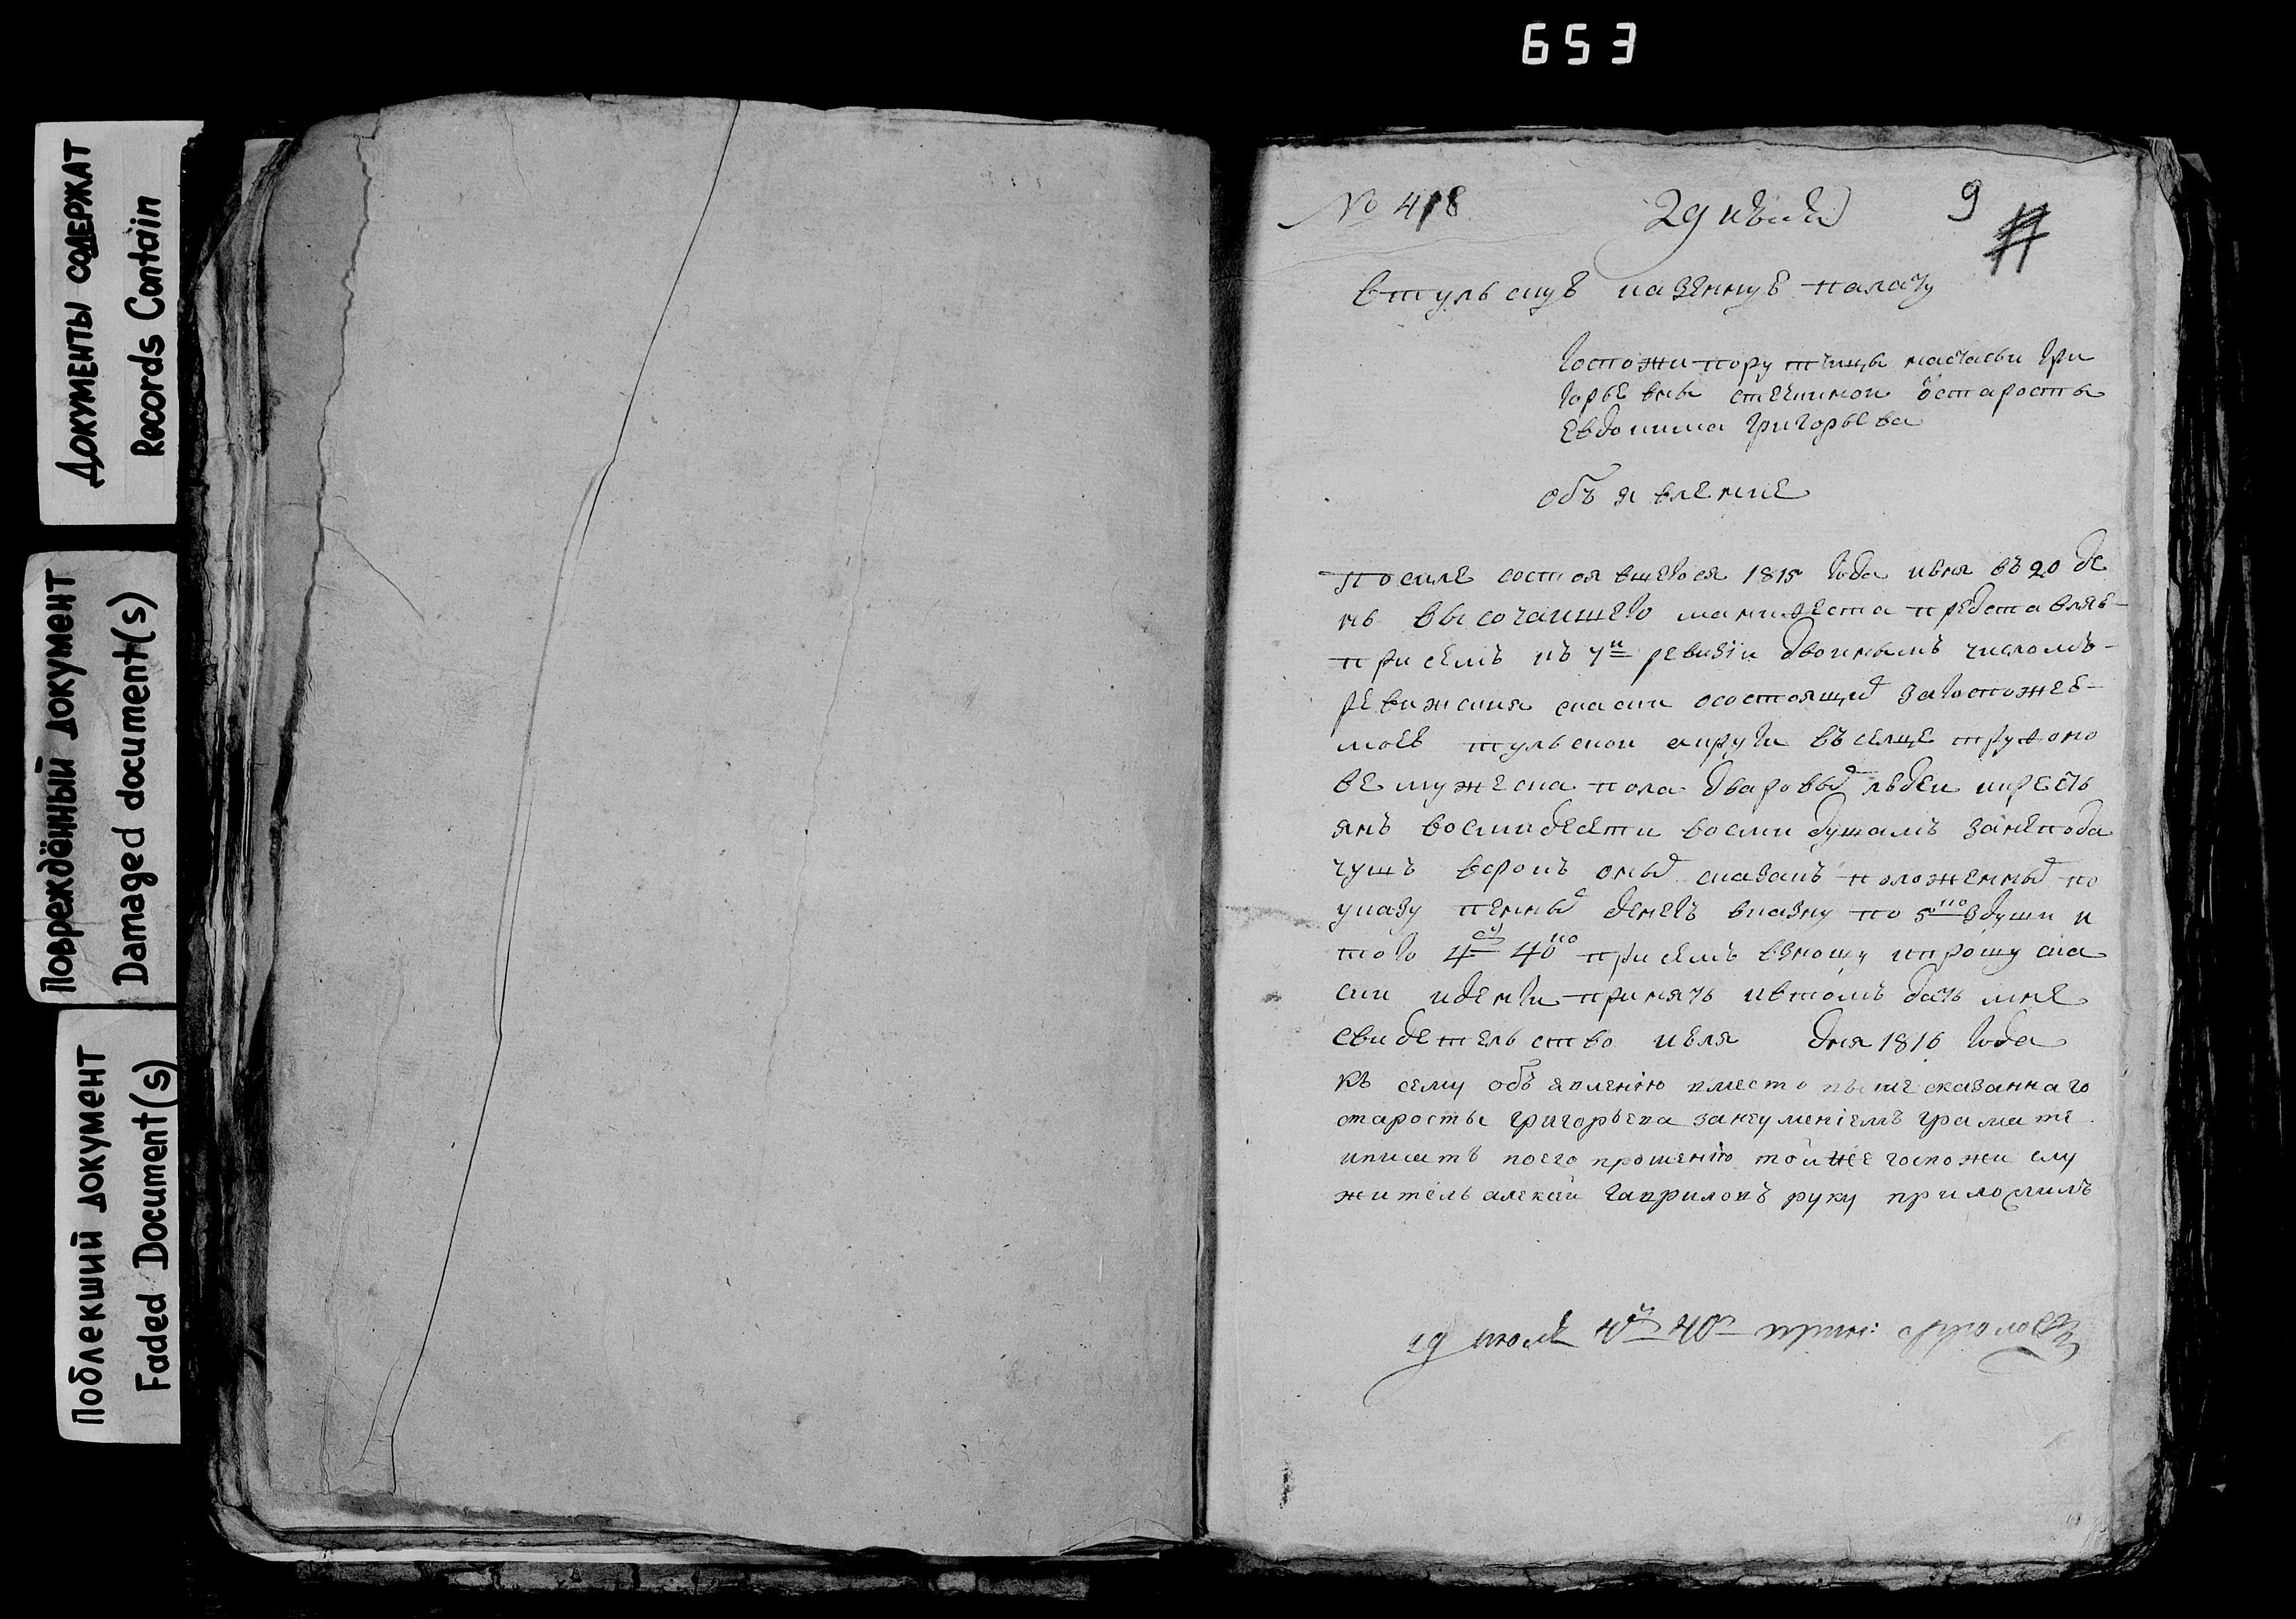 653
Документы содержат
Records Contain
Повреждённый документ
Damaged document(s)
Поблекший документ
Faded Document(s)
№ 418 29 9
Втульскую казенную палату
Госпожи порутчицы настасьи Гри
горьевны старосты
Евдокима Григорьева
объявление
посиле состоявшегося 1815 года июня въ 20 де
нь высочаишего манифеста представляю
присемъ къ 7й ревизiи двоинымъ числомъ
ревижския скаски осостоящих загоспожею
моею тульскои округи въселце труфоно
ве мужеска пола дваровых людеи икресть
янъ восмидесяти восми душамъ занепода
чуюъ всрокъ оных сказакъ положенных по
указу пенных денегъ вказну по 5ко здуши и
того 4ру 40ко присемъ взношу ипрошу ска
ски иденги принять ивтомъ дать мне
свидетельство июля дня 1816 года
къ сему объявленiю вместо выше сказаннаго
старосты григорьева занеуменiемъ грамате
иписать поего прошенiю тойже госпожи слу
житель алексей Гавриловъ руку приложилъ
29 июля 4ру 40ко прин: